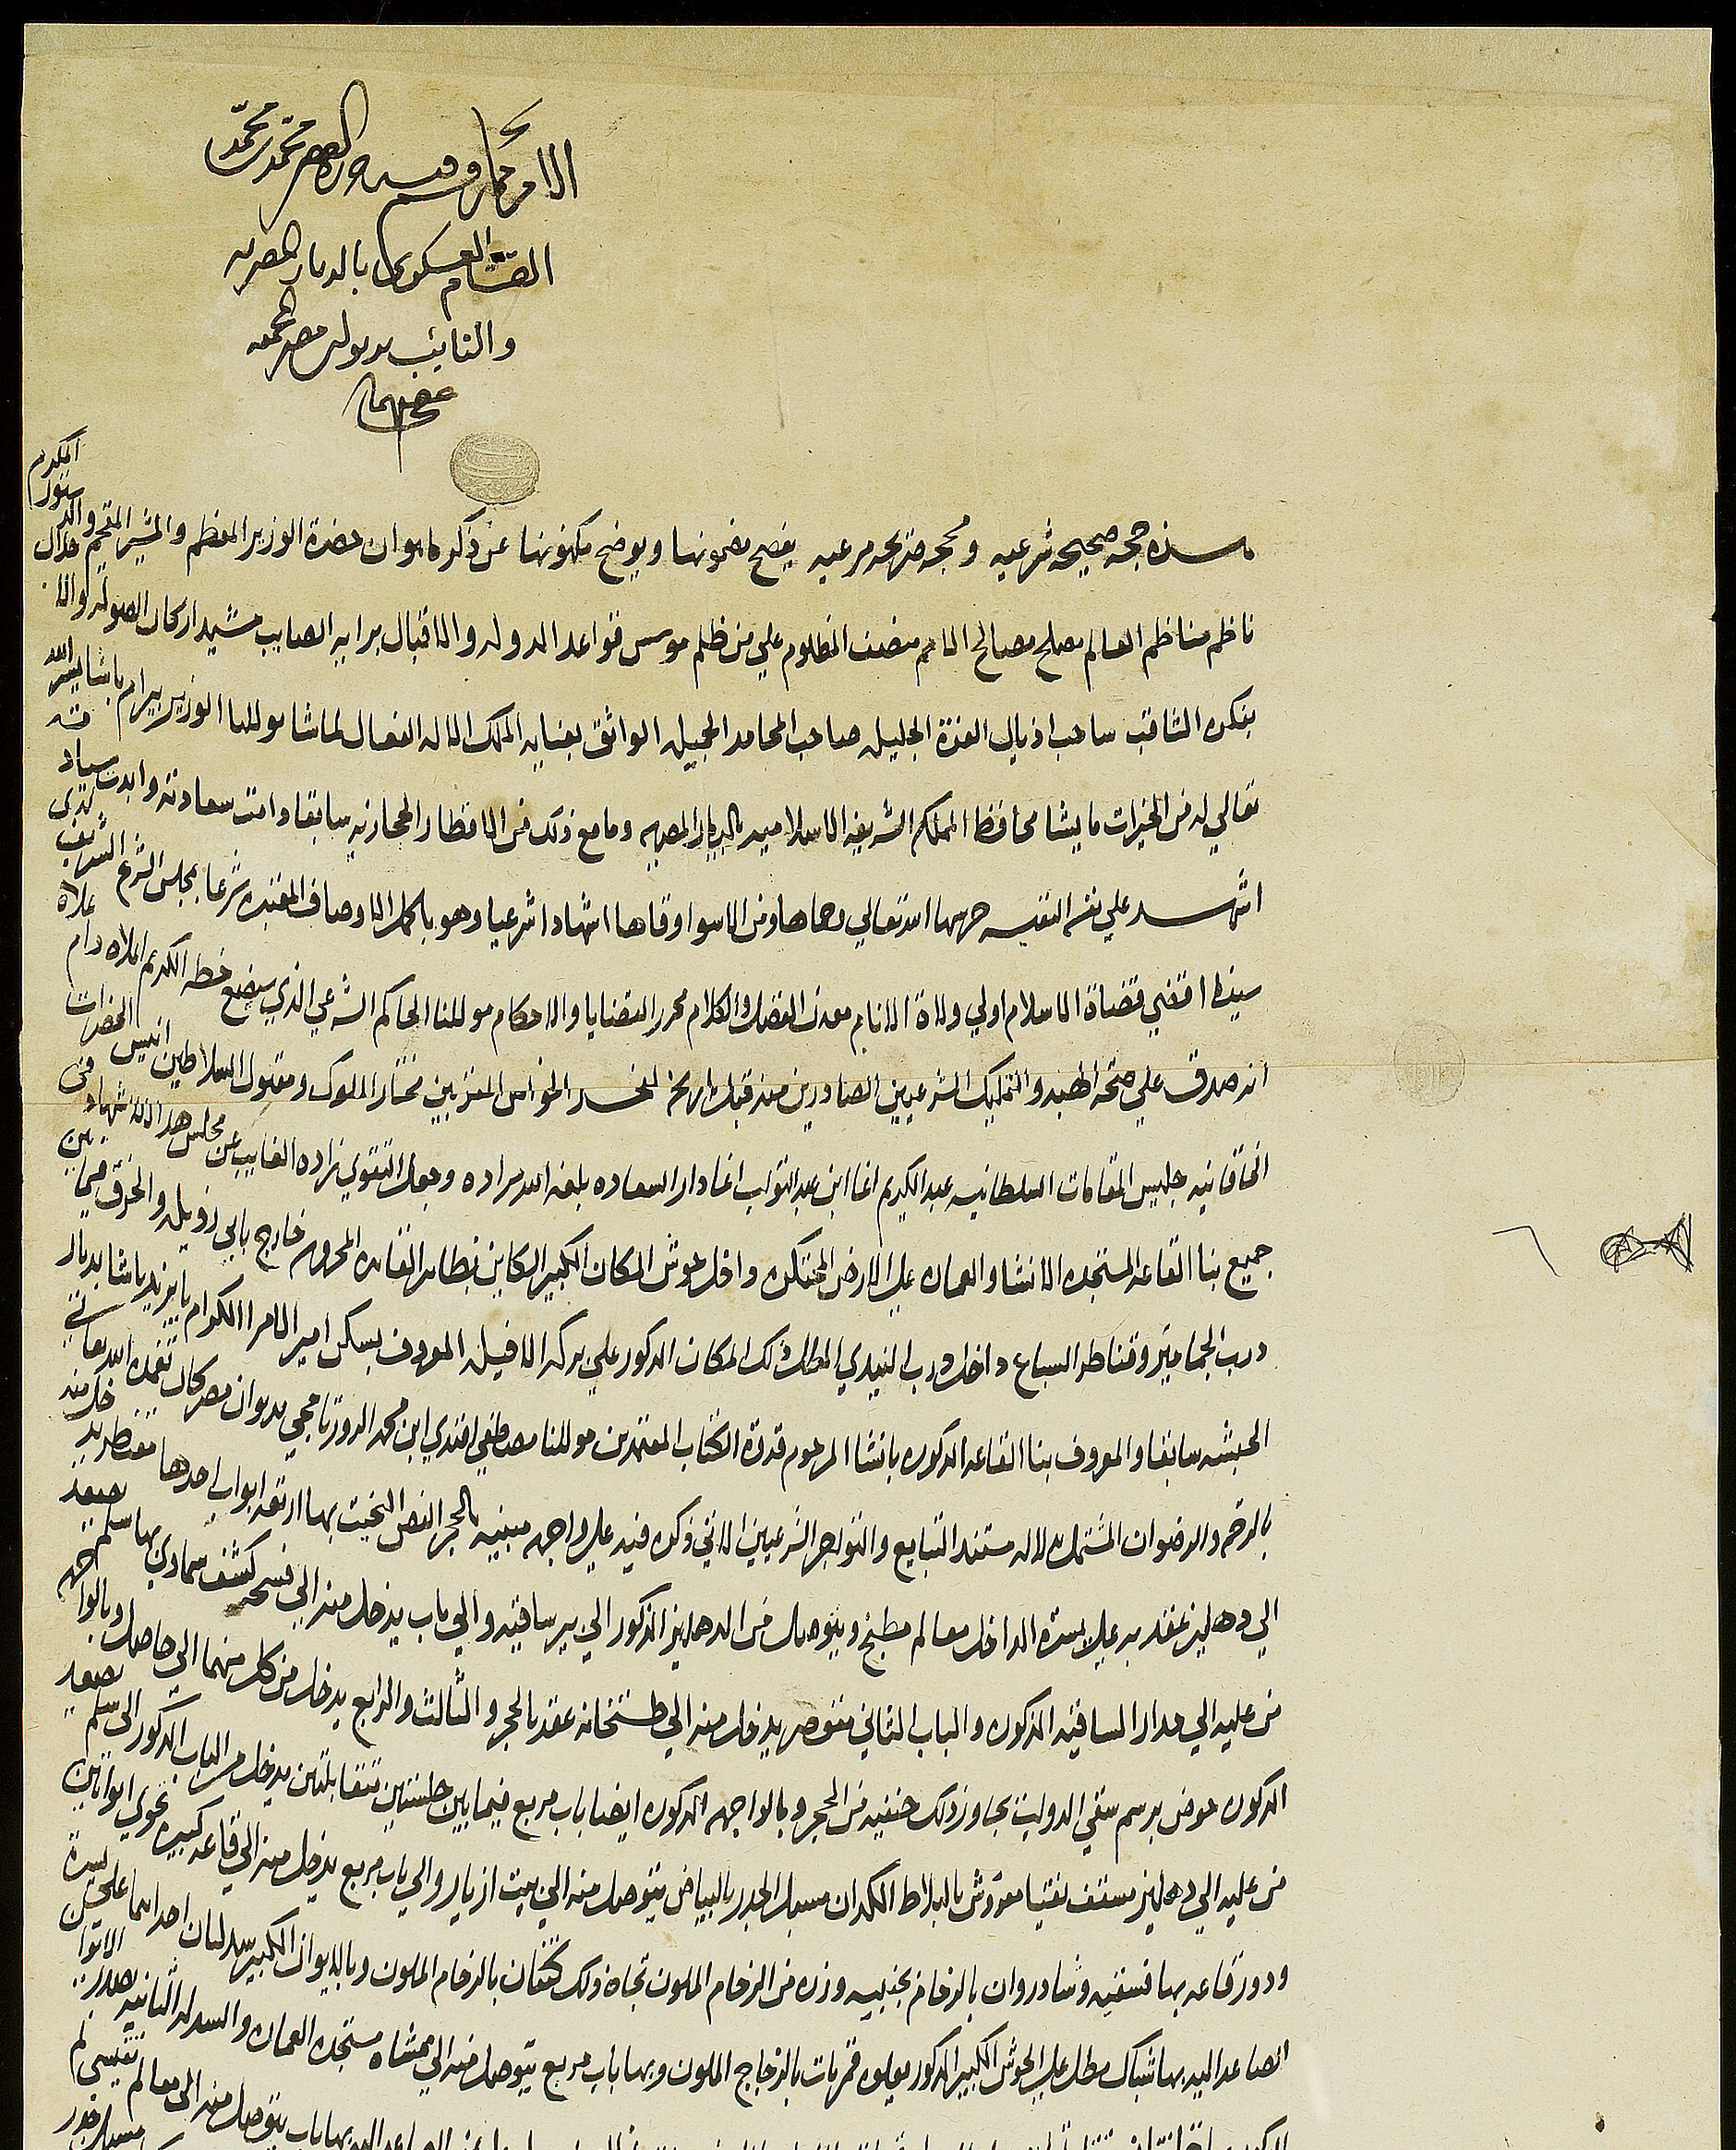 الامر كما رقم فيه محمد بن محمد
القسام العسكرى بالديار المصريه
والنايب بديوان مصر المحميه
عفى عنهما
هذه حجه صحيحه شرعيه ومحجه صريحه مرعيه يفصح مضمونها ويوضح مكنونها عن ذكر ما هو ان حضرة الوزير المعظم والمشير المفخم والدستور المكرم
ناظم مناظم العالم مصلح مصالح الامم منصف المظلوم علي من ظلم موسس قواعد الدوله والاقبال برايه الصايب مشيد اركان الصوله والاجلال
بفكره الثاقب ساحب اذيال العزة الجليله صاحب المحامد الجميله الواثق بعنايه الملك الاله الفعال لما شا مولانا الوزير بيرام باشا يسر الله
تعالي له من الخيرات ما يشا محافظ المملكه الشريفه الاسلاميه بالديار المصريه وما مع ذلك من الاقطار الحجازيه سابقا دامت سعادته وابدت سيادته
اشهد علي نفسه النفيسه حرسها الله تعالي وحماها ومن الاسوا وقاها اشهادا شرعيا وهو باكمل الاوصاف المعتبره شرعا بمجلس الشرع الشريف لدى
سيدنا اقضي قضاة الاسلام اولي ولاة الانام معدن الفضل والكلام محرر القضايا والاحكام مولانا الحاكم الشرعي الذي سيضع خطه الكريم اعلاه دام علاه
انه صدق علي صحة الهبه والتمليك الشرعيين الصادرين منه قبل تاريخه لفخر الخواص المقربين مختار الملوك ومقبول السلاطين انيس الحضرات
الخاقانيه جليس المقامات السلطانيه عبد الكريم اغا ابن عبد التواب اغا دار السعاده بلغه الله مراده وجعل التقوي زاده الغايب عن مجلس هذا الاشهاد في
جميع بنا القاعه المستجده الانشا والعماره علي الارض المحتكره داخل حوش المكان الكبير الكاين بظاهر القاهره المحروسه خارج بابي زويله والخرق فيما بين
درب الجماميز وقناطر السباع داخل درب النيدي المطل ذلك المكان المذكور علي بركه الافيله المعروف بسكن امير الامرا الكرام بايزيد باشا بديار
الحبشه سابقا والمعروف بنا القاعه المذكوره بانشا المرحوم قدوة الكتاب المعتمدين مولانا مصطفي افندي ابن محمد الروزنامجي بديوان مصر كان تغمده الله تعالي
بالرحمه والرضوان المشتمل بدلاله مستند التبايع والتواجر الشرعيين الاتي ذكره فيه علي واجهه مبنيه بالحجر الفص النحيت بها اربعه ابواب احدها مقنطر يدخل منه
الي دهليز عقد به علي يسرة الداخل معالم مطبخ ويتوصل من الدهليز المذكور الي بير ساقيه والي باب يدخل منه الي فسحه كشف سماوي بها سلم يصعد
من عليه الي مدار الساقيه المذكوره والباب الثاني مقوصر يدخل منه الي طشتخانه عقد بالحجر والثالث والرابع يدخل من كل منهما الي حاصل وبالواجهه
المذكوره حوض برسم سقي الدواب يجاور ذلك حنفيه من الحجر وبالواجهه المذكوره ايضا باب مربع فيما بين جلستين متقابلتين يدخل من الباب المذكور الى سلم يصعد
من عليه الي دهليز مسقف نقيا مفروش بالبلاط الكدان مسبل الجدر بالبياض يتوصل منه الي بيت ازيار والي باب مربع يدخل منه الي قاعه كبيره تحوي ايوانين
ودورقاعه بها فسقيه وشادروان بالرخام وزره من الرخام الملون تجاه ذلك بالرخام الملون وبالايوان الكبير سدلتان احداهما علي يسرة
الصاعد اليه بها شباك مطل علي الحوش الكبير المذكور يعلوه قمريات بالزجاج الملون وبها باب مربع يتوصل منه الي ممشاه مستجده العماره والسدله الثانيه بصدر الايوان